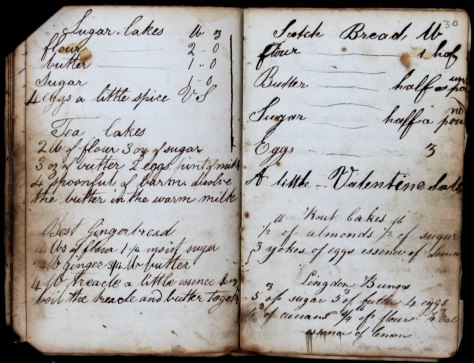 Sugar Cakes lb 3
flour 2 .. 0
butter 1 .. 0
Sugar 1 .. 0
4 eggs a little spice V S
Tea Cakes
2 lb of flour 3 oz of sugar
3 oz of butter 2 eggs pint of milk
4 Spoonfuls of barm disolve
the butter in the warm milk
Best Gingerbread
4 lbs of flour 1 1/4 moist sugar
ginger 3/4 lb butter
4 lb treacle a little essence
boil the treacle and butter together
30
Scotch Bread lb
flour 1 half
Butter half a pound
Sugar half a pound
Eggs 3
A little Valentine Salt
Rout Cakes lb
1/2 of almonds 1/2 of sugar
3 yokes of eggs essence of lemon
Buns
of sugar 3 of butter 4 eggs
of currans of flour
essence of lemon